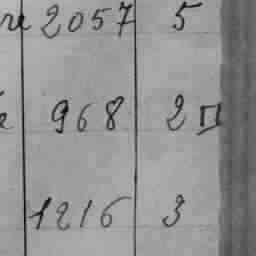 2057 5
968 2
1216 3